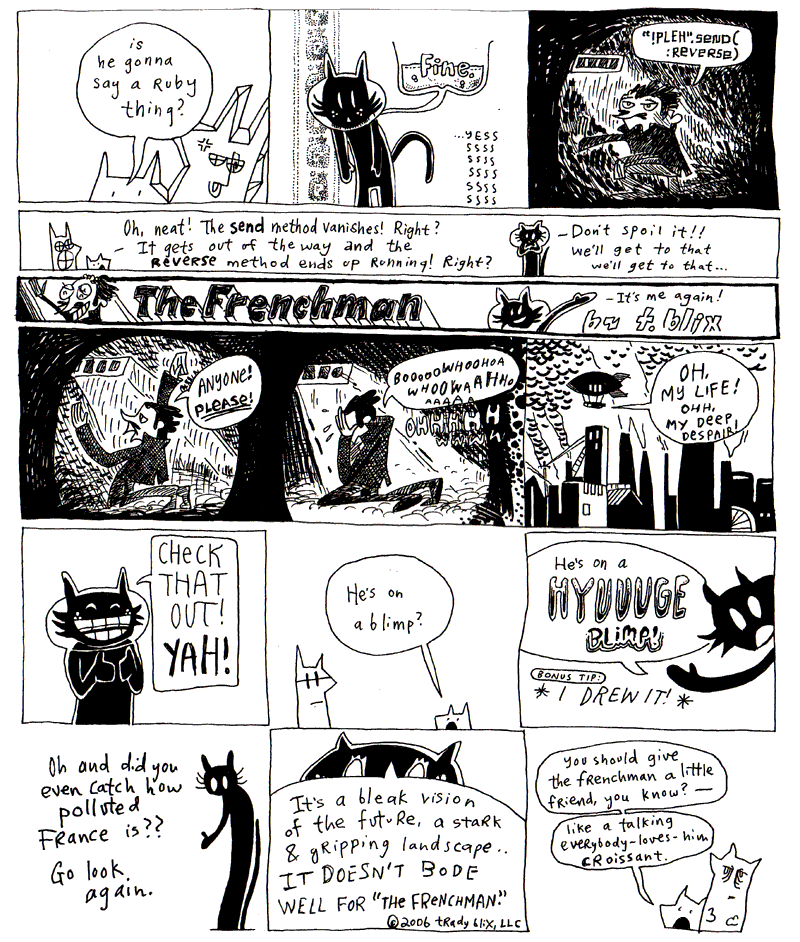 is
he gonna
say a Ruby
thing?
Fine.
...YESS
SSSS
SSSS
SSSS
SSSS
SSSS
"!PLEH".send(
:reverse)
Oh, neat! The send method vanishes! Right?
– It gets out of the way and the
reverse method ends up running! Right?
– Don't spoil it!!
we'll get to that
we'll get to that...
The Frenchman
– It's me again!
by t. blix
ANYONE!
PLEASE!
BOOOOOWHOOHOA
WHOOWAAHHo
AAAAA
OHHHHHH
OH,
MY LIFE!
OHH,
MY DEEP
DESPAIR!
CHECK
THAT
OUT!
YAH!
He's on
a blimp?
He's on a
HYUUUGE
BLIMP!
BONUS TIP:
* I DREW IT! *
Oh and did you
even catch how
polluted
France is??
Go look
again.
It's a bleak vision
of the future, a stark
& gripping landscape..
IT DOESN'T BODE
WELL FOR "THE FRENCHMAN."
©2006 tRady blix, LLC
you should give
the frenchman a little
friend, you know? —
like a talking
everybody-loves-him
croissant.